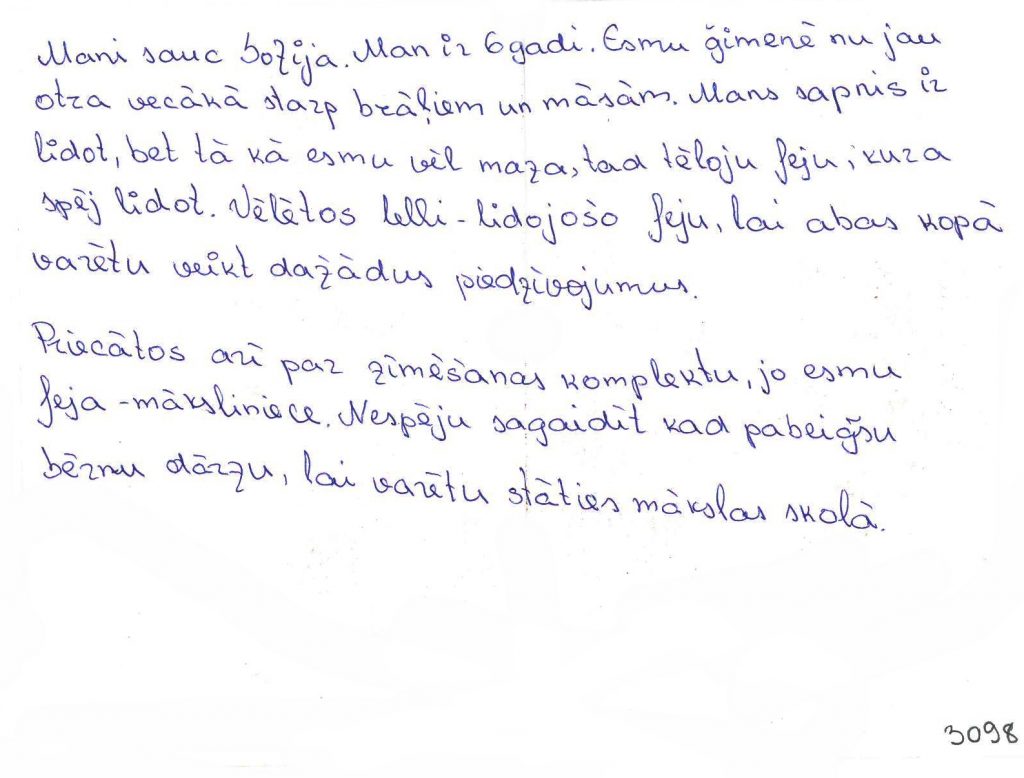 Mani sauc Sofija. Man ir 6 gadi. Esmu ģimenē nu jau
otra vecākā starp brāļiem un māsām. Mans sapnis ir
lidot, bet tā kā esmu vēl maza, tad tēloju feju, kura
spēj lidot. Vēlētos lelli - lidojošo feju, lai abas kopā
varētu veikt dažādus piedzīvojumus.
Priecātos arī par zīmēšanas komplektu, jo esmu
feja - māksliniece. Nespēju sagaidīt kad pabeigšu
bērnu dārzu, lai varētu stāties mākslas skolā.
3098